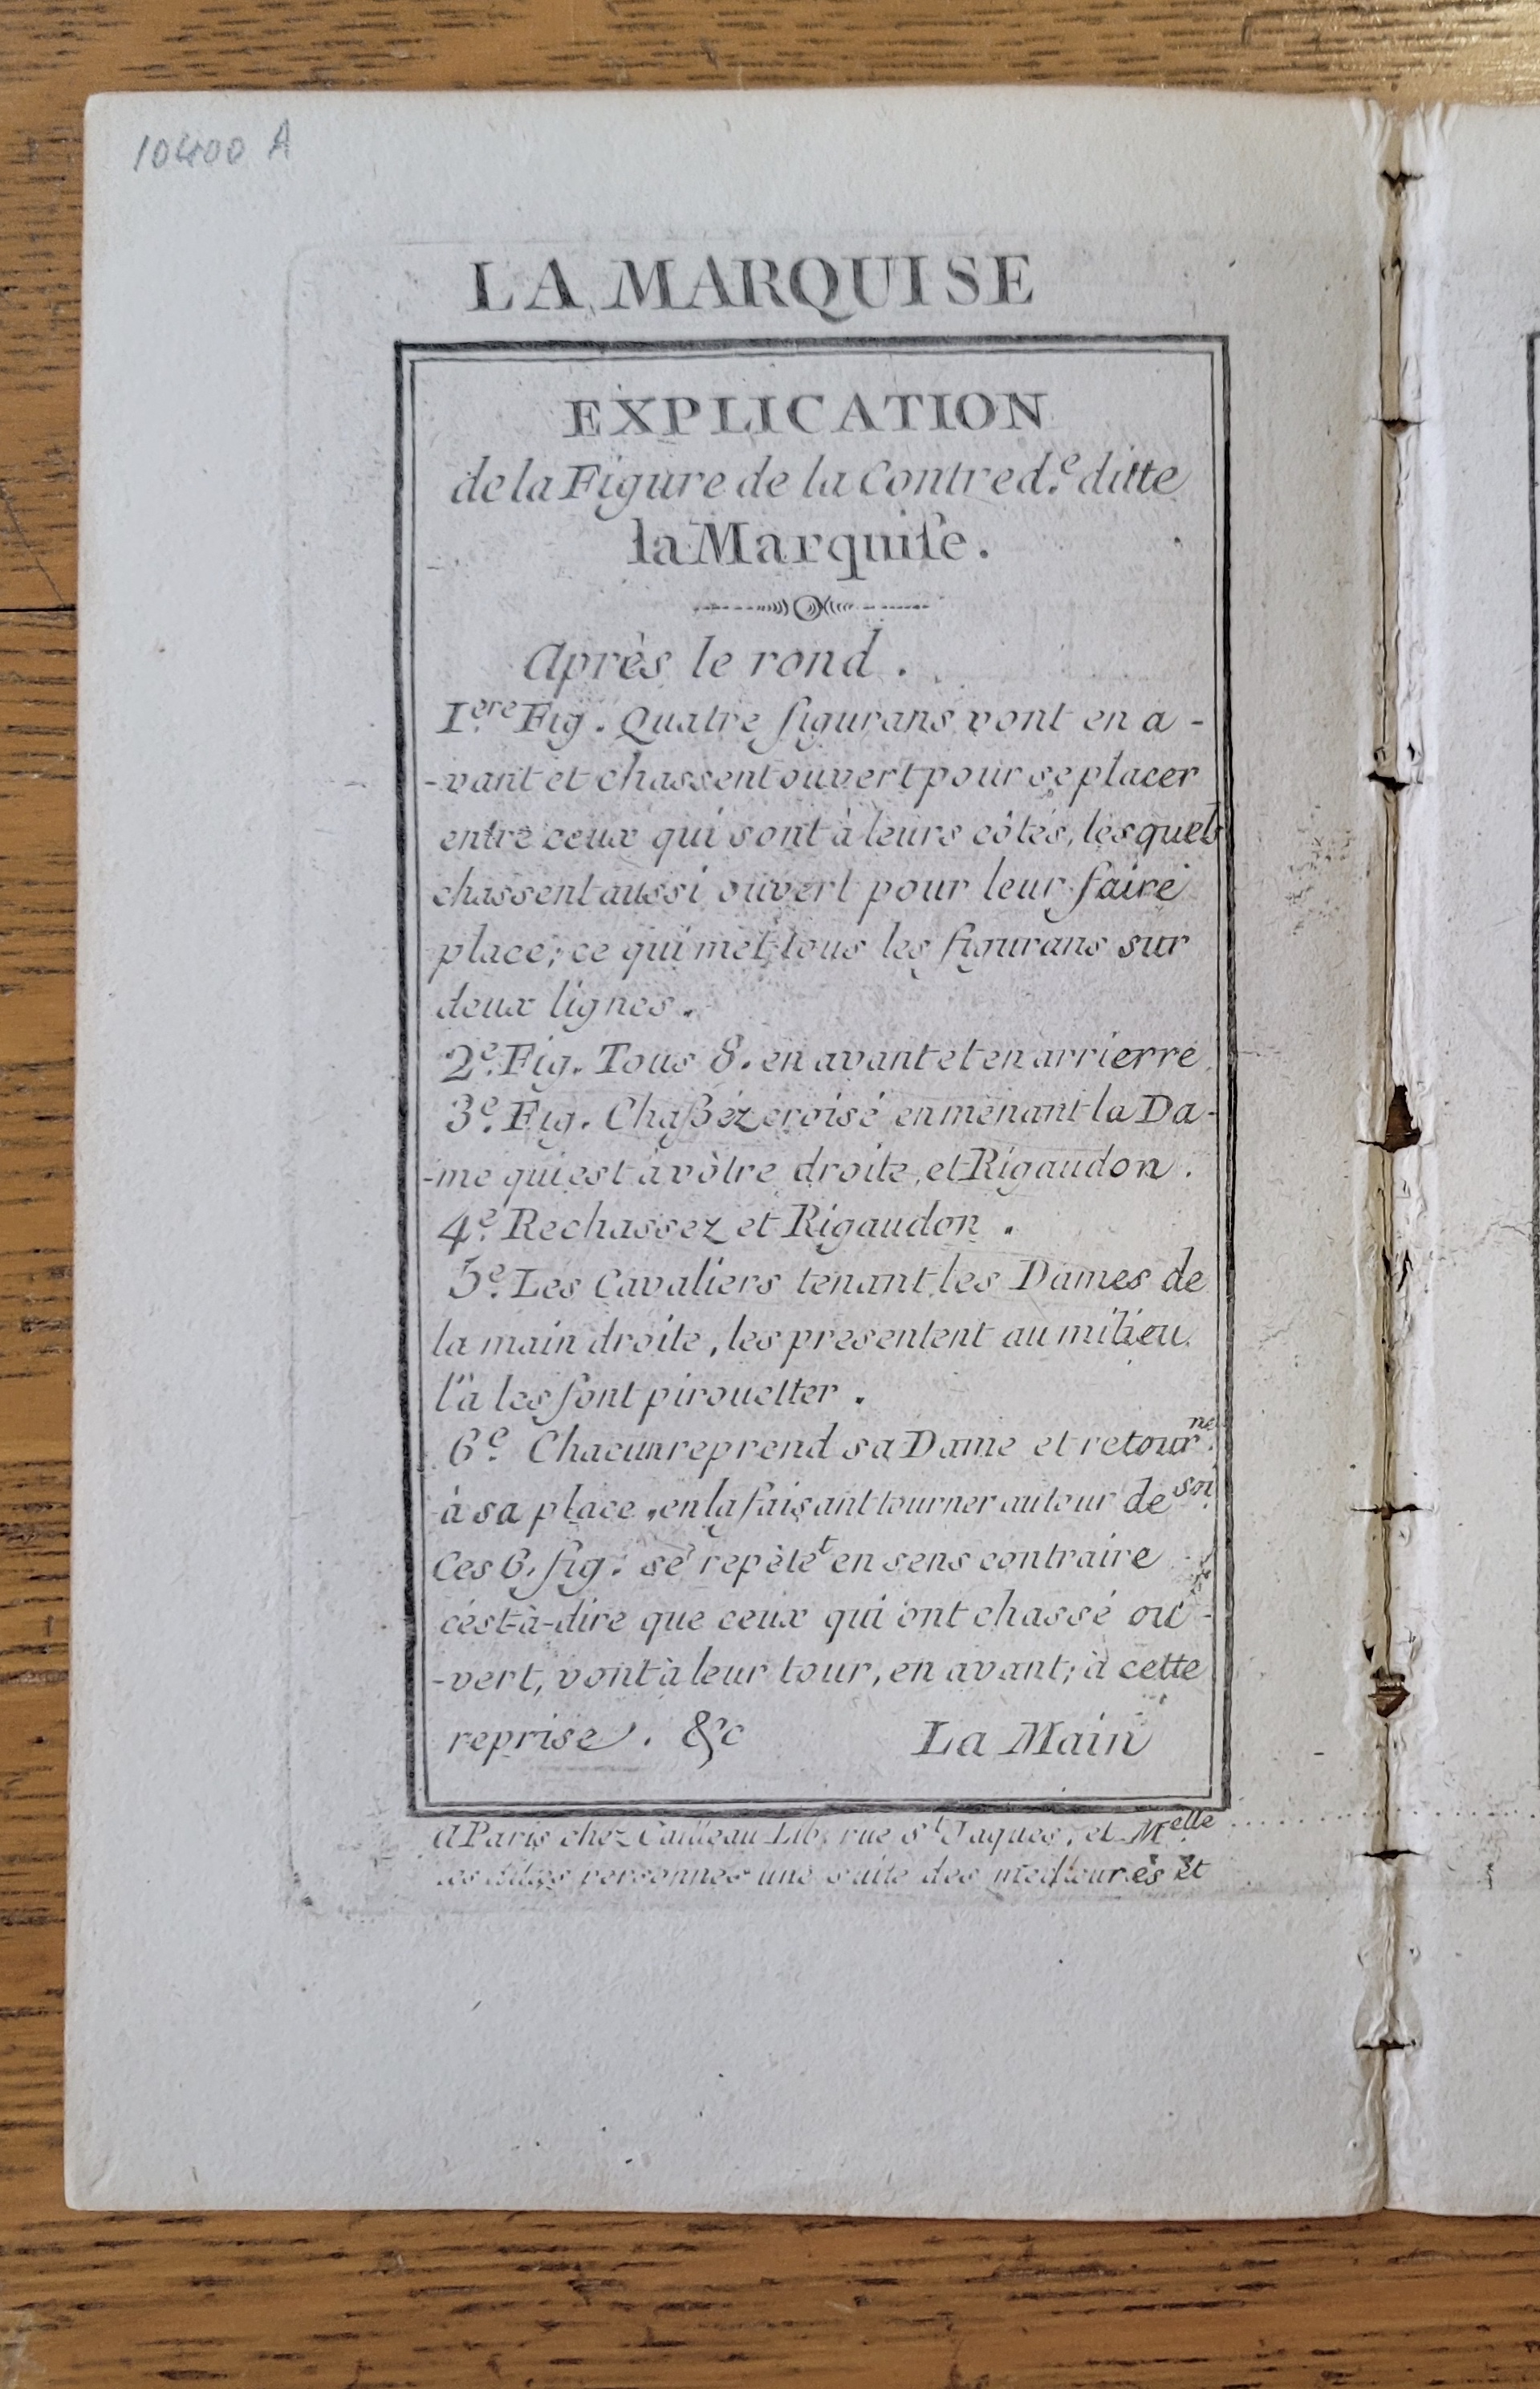 10400 A
LA MARQUISE
EXPLICATION
de la Figure de la Contred.e ditte
la Marquiſe.
Après le rond.
I.ere Fig. Quatre figurans vont en a-
-vant et chassent ouvert pour se placer
entre ceux qui sont à leurs côtés, lesquels
chassent aussi ouvert pour leur faire
place; ce qui met tous les figurans sur
deux lignes.
2.e Fig. Tous 8. en avant et en arrierre
3.e Fig. Chaßéz croisé en menant la Da-
-me qui est à vôtre droite, et Rigaudon.
4.e Rechassez et Rigaudon.
5.e Les Cavaliers tenant les Dames de
la main droite, les presentent au milieu
l'à les font pirouetter.
6.e Chacun reprend sa Dame et retourne
à sa place, en la faisant tourner autour de soi
Ces 6. fig. se repètet en sens contraire
c'est-à-dire que ceux qui ont chassé ou-
-vert, vont à leur tour, en avant; à cette
reprise. &c La Main
A Paris chez Cailleau Lib. rue St Jaques, et M.elle
personnes une suite des meilleures et